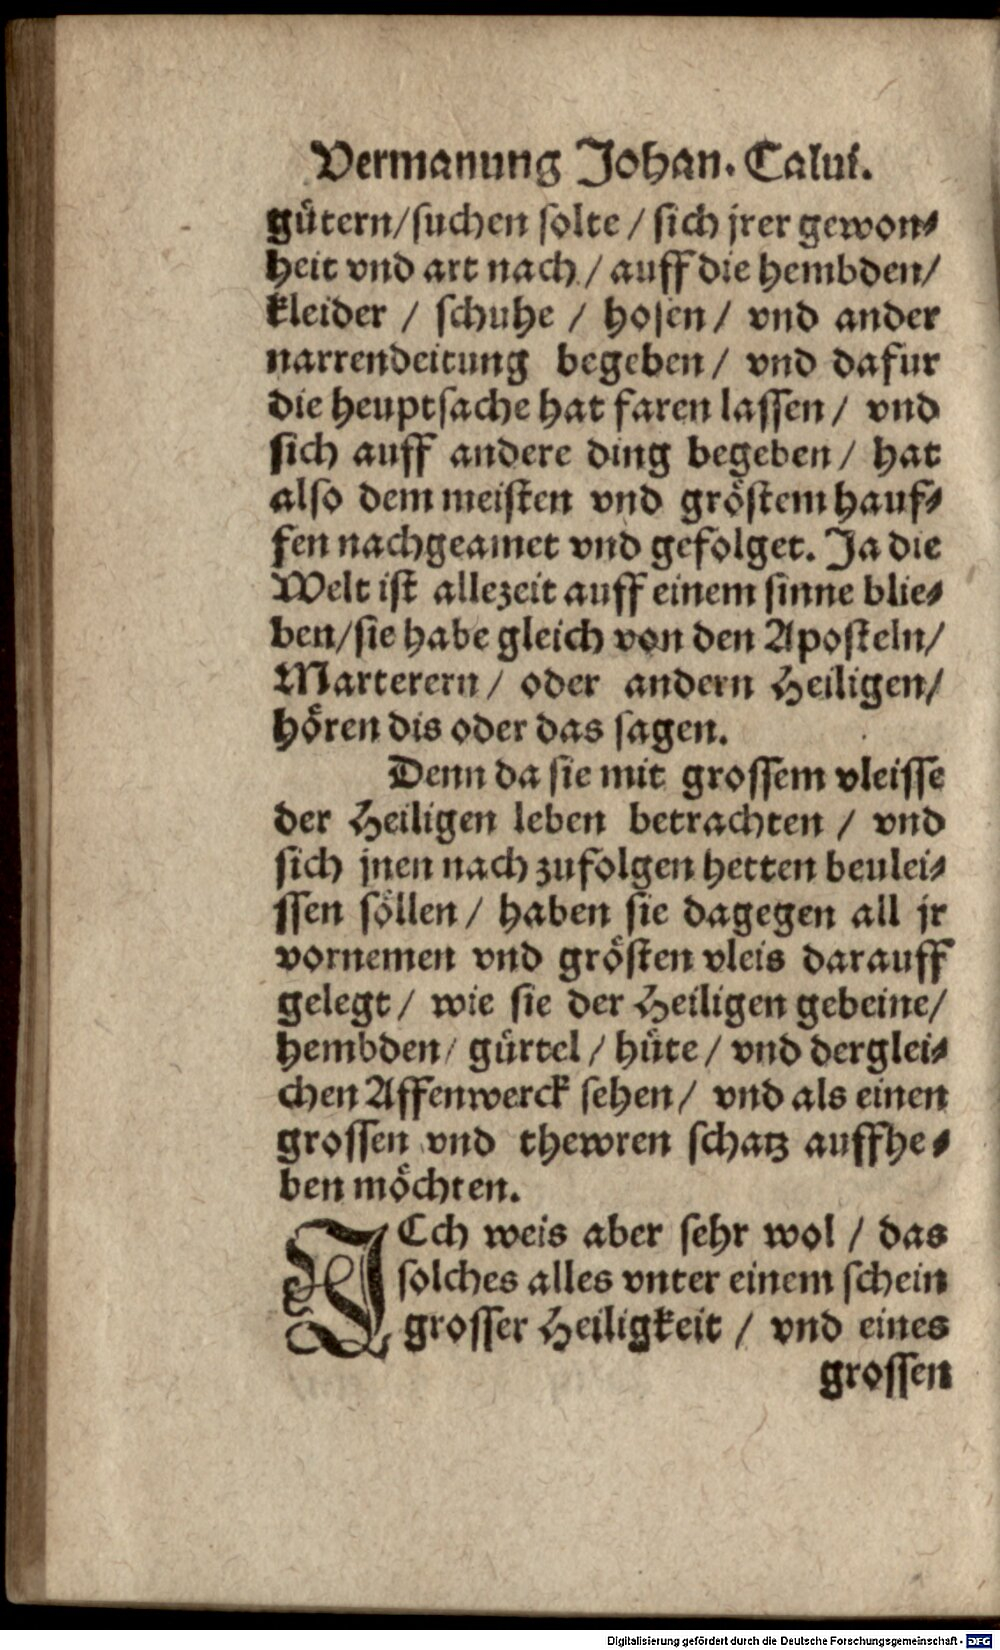 Vermanung Johan. Calui.
gütern/suchen solte / sich jrer gewon⸗
heit vnd art nach / auff die hembden/
kleider / schuhe / hosen / vnd ander
narrendeitung begeben / vnd dafur
die heuptsache hat faren lassen / vnd
sich auff andere ding begeben / hat
also dem meisten vnd gröstem hauf⸗
fen nachgeamet vnd gefolget. Ja die
Welt ist allezeit auff einem sinne blie⸗
ben/sie habe gleich von den Aposteln/
Marterern / oder andern Heiligen/
hören dis oder das sagen.
Denn da sie mit grossem vleisse
der Heiligen leben betrachten / vnd
sich jnen nach zufolgen hetten beulei⸗
ssen söllen / haben sie dagegen all jr
vornemen vnd grösten vleis darauff
gelegt / wie sie der Heiligen gebeine/
hembden / gürtel / hüte / vnd derglei⸗
chen Affenwerck sehen / vnd als einen
grossen vnd thewren schatz auffhe⸗
ben möchten.
ICch weis aber sehr wol / das
solches alles vnter einem schein
grosser Heiligkeit / vnd eines
grossen
Digitalisierung gefördert durch die Deutsche Forschungsgemeinschaft - DFG